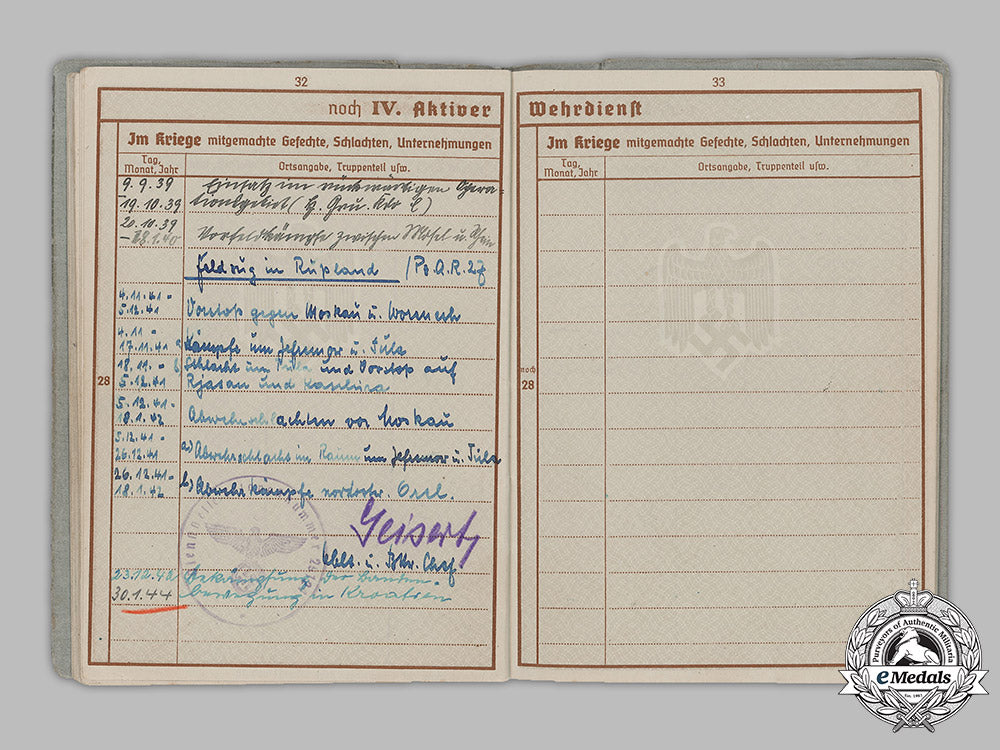 32
noch IV. Aktiver
Im Kriege mitgemachte Gefechte, Schlachten, Unternehmungen
Tag, Monat, Jahr
Ortsangabe, Truppenteil usw.
9.9.39 Einsatz im rückwärtigen Opera-
19.10.39 tionsgebiet (H. Gru. Kdo C)
20.10.39
Vorfeldkämpfe zwischen Mosel u. Rhein
Feldzug in Rußland (Pz.A.R.27
4.11.41 -
5.12.41 Vorstoß gegen Moskau u. Woronesh
4.11 -
17.11.41 Kämpfe um Jefremow u. Tula
18.11. - Schlacht um Tula und Vorstoß auf
5.12.41 Rjasan und Kaschira
5.12.41 -
18.1.42 Abwehrschlachten vor Moskau
5.12.41 -
26.12.41 a) Abwehrschlacht im Raum um Jefremow u. Tula
26.12.41 -
18.1.42 b) Abwehrkämpfe nordostw. Orel.
Geisert
Oblt. u. Bttr. Chef
23.12.42 Bekämpfung der Banden-
30.1.44 bewegung in Kroatien
28
33
Wehrdienst
Im Kriege mitgemachte Gefechte, Schlachten, Unternehmungen
Tag, Monat, Jahr
Ortsangabe, Truppenteil usw.
noch
28
Purveyors of Authentic Militaria
eMedals
Est. 1967